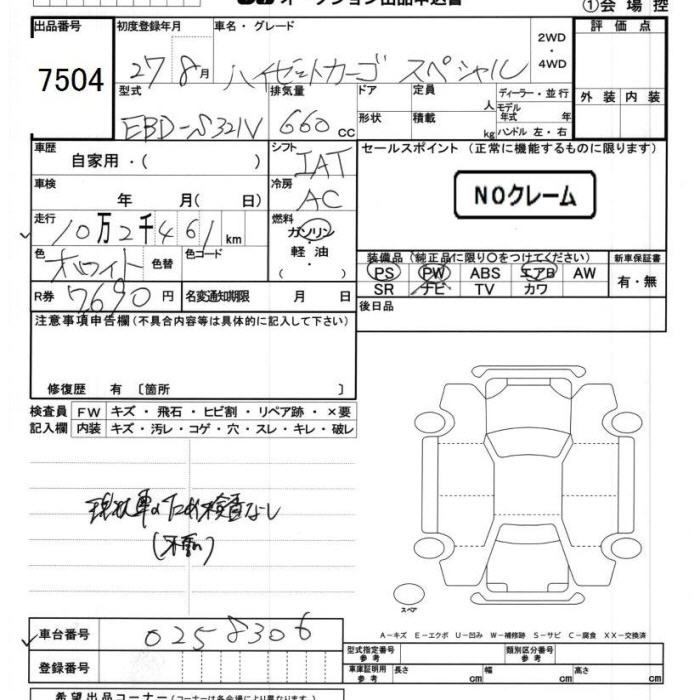 オークション出品申込書
①会場控
出品番号 初度登録年月 車名・グレード 評価点
7504 27 8月 ハイゼットカーゴ スペシャル 2WD・4WD
型式 排気量 ドア 定員 人 ディーラー・並行 外装 内装
EBD-S321V 660cc 形状 積載 kg モデル年式 年 ハンドル 左・右
車歴 自家用・( ) シフト IAT セールスポイント (正常に機能するものに限ります)
車検 年 月( 日) 冷房 AC NOクレーム
走行 10万2千461km 燃料 ガソリン・軽油・( )
色 ホワイト 色替 色コード 装備品(純正品に限り○をつけてください) 新車保証書
PS PW ABS エアB AW 有・無
R券 7690円 名変通知期限 月 日 SR ナビ TV カワ
注意事項申告欄(不具合内容等は具体的に記入して下さい) 後日品
修復歴 有 〔箇所 〕
検査員 FW キズ・飛石・ヒビ割・リペア跡・×要
記入欄 内装 キズ・汚レ・コゲ・穴・スレ・キレ・破レ
現状車のため検査なし
スペア
A-キズ E-エクボ U-凹み W-補修跡 S-サビ C-腐食 XX-交換済
車台番号 0258306
型式指定番号 参考 類別区分番号 参考
登録番号 車庫証明用 参考 長さ cm 幅 cm 高さ cm
希望出品コーナー(コーナーは各会場により異なります)